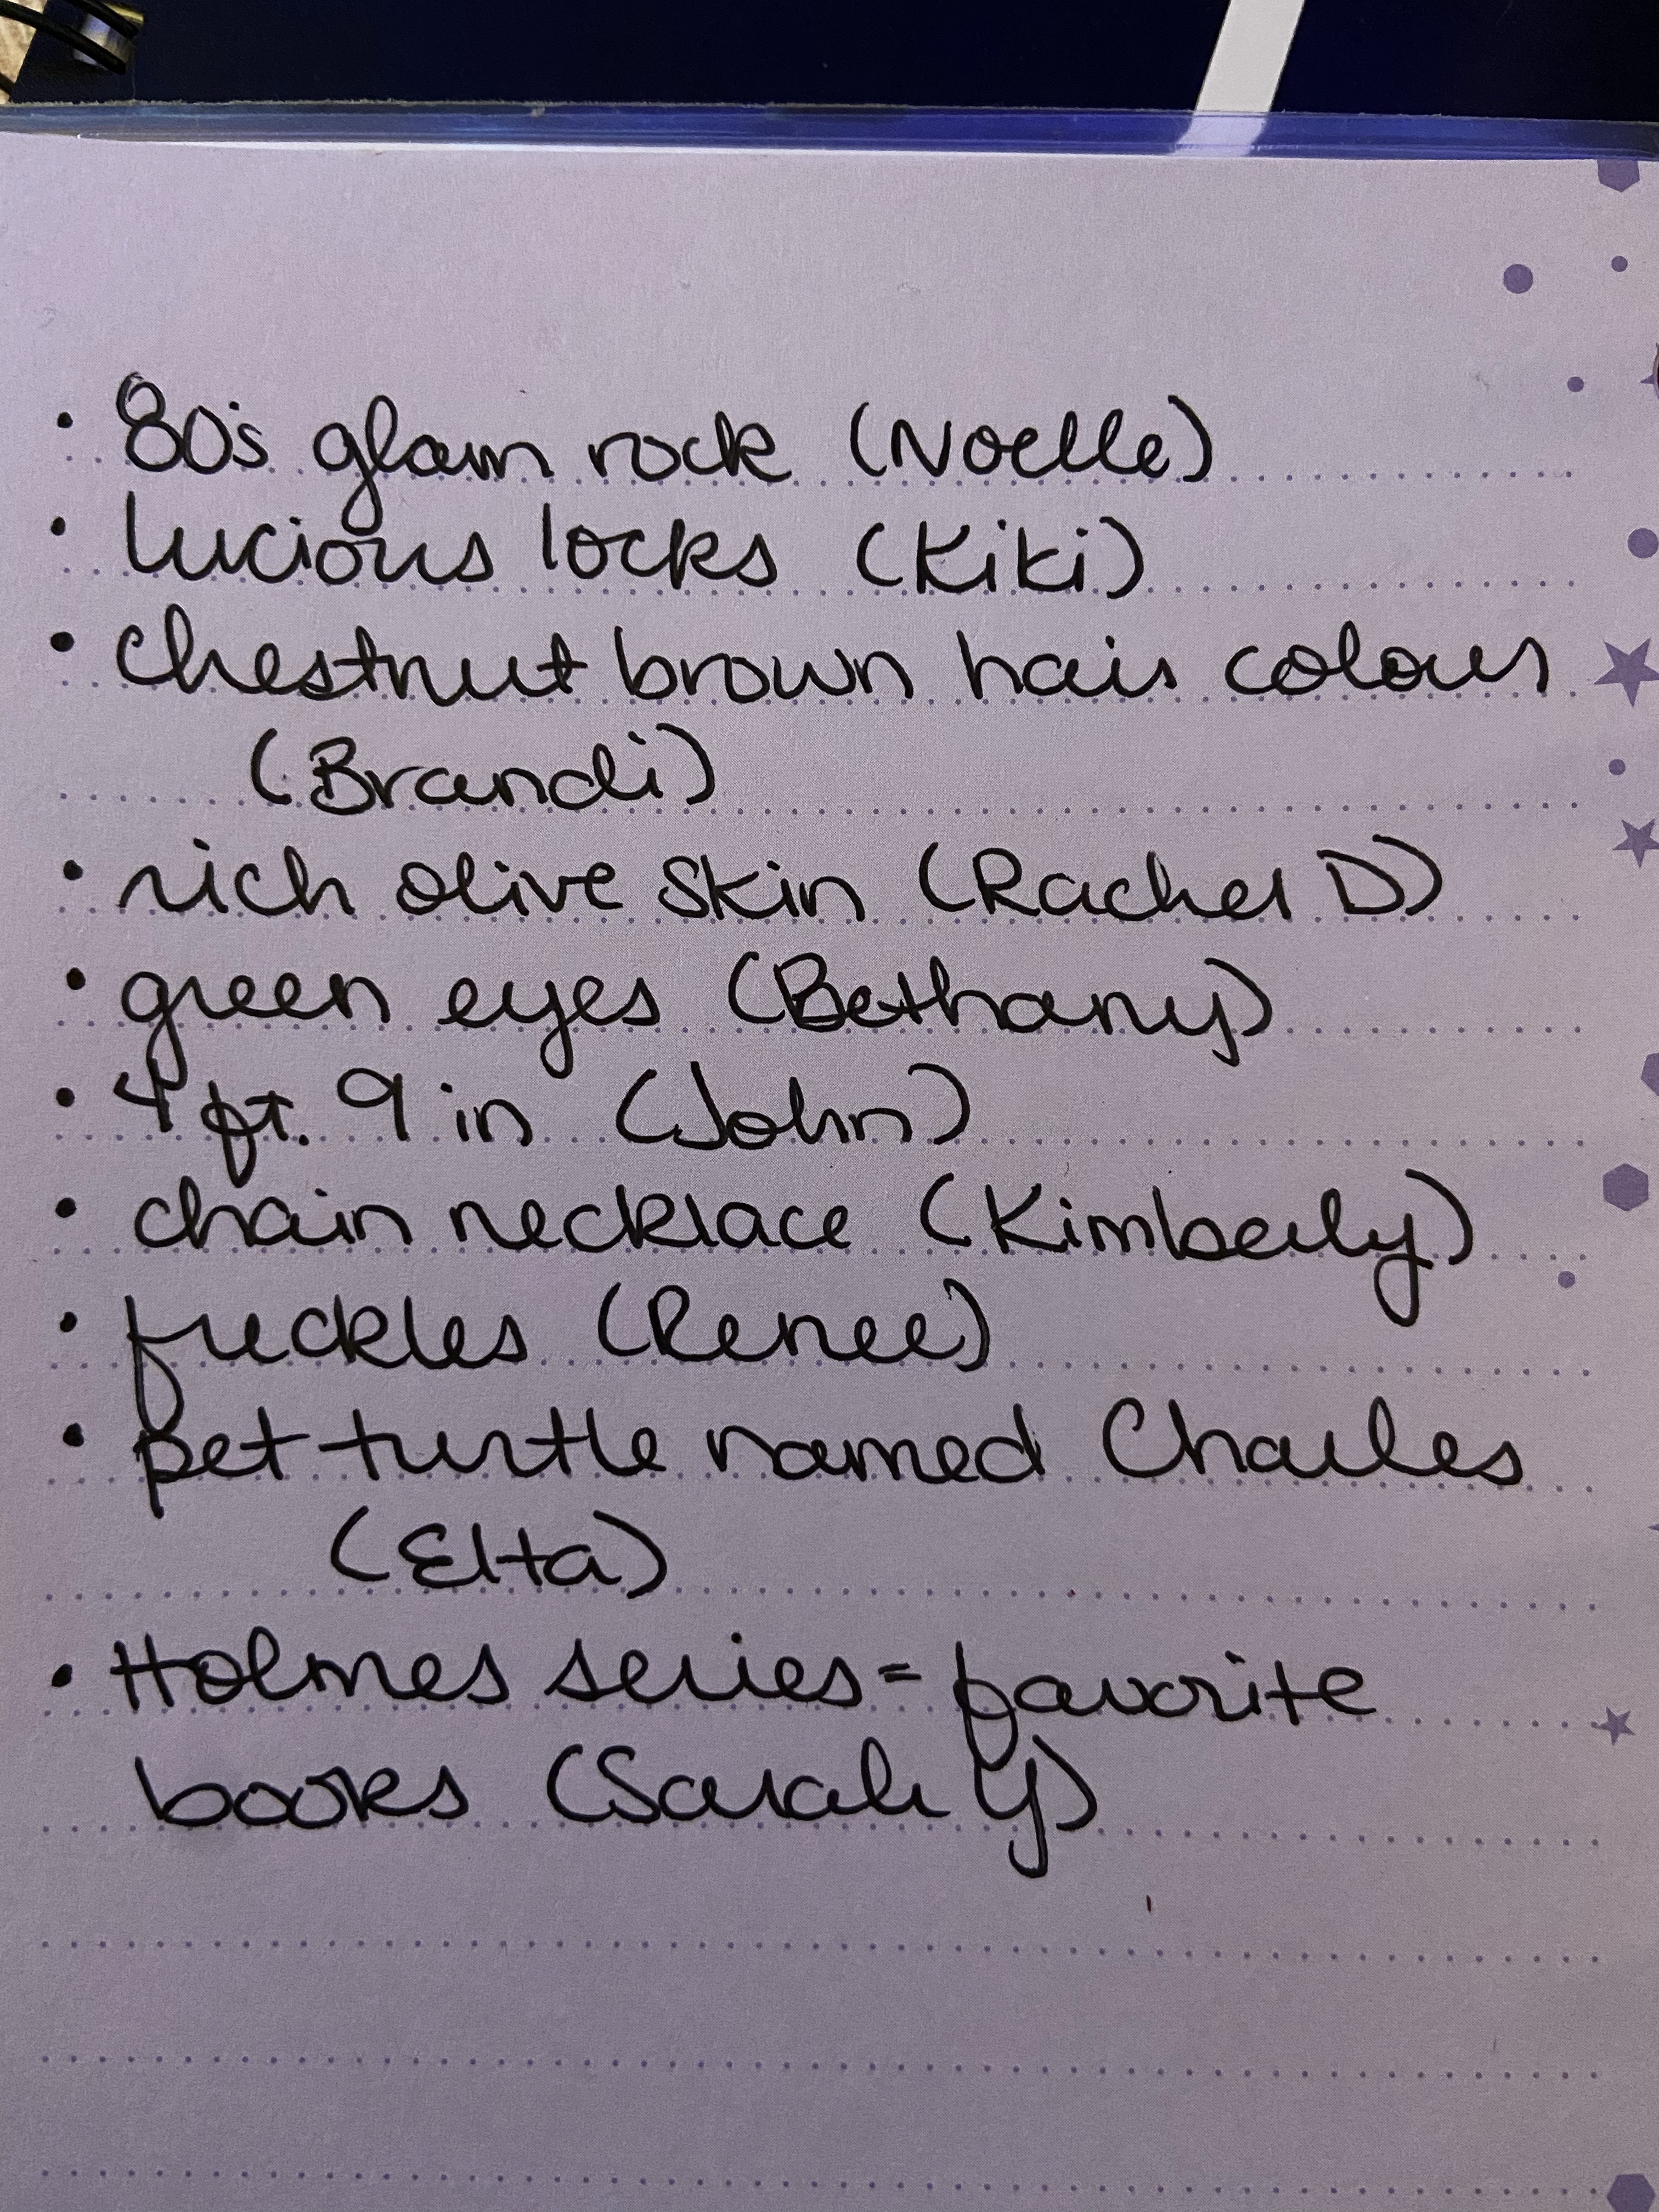 • 80's glam rock (Noelle)
• lucious locks (Kiki)
• chestnut brown hair colour
(Brandi)
• rich olive skin (Rachel D)
• green eyes (Bethany)
• 4 ft. 9 in (John)
• chain necklace (Kimberly)
• freckles (Renee)
• pet turtle named Charles
(Elta)
• Holmes series = favorite
books (Sarah Y)